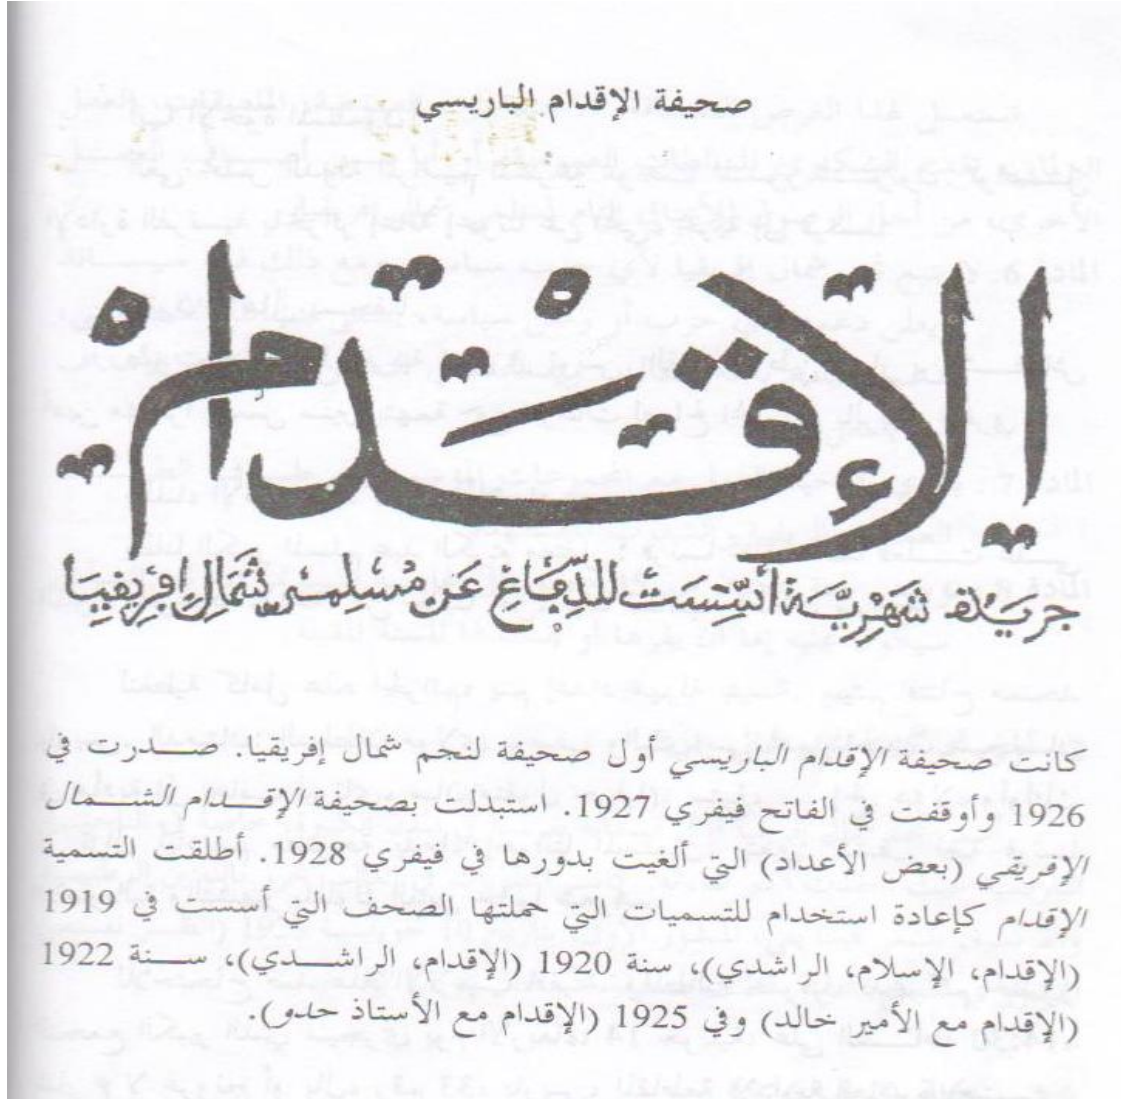 صحيفة الإقدام الباريسي
الإقدام
جريدة شهرية أسست للدفاع عن مسلمي شمال إفريقيا
كانت صحيفة الإقدام الباريسي أول صحيفة لنجم شمال إفريقيا. صدرت في
1926 وأوقفت في الفاتح فيفري 1927. استبدلت بصحيفة الإقدام الشمال
الإفريقي (بعض الأعداد) التي ألغيت بدورها في فيفري 1928. أطلقت التسمية
الإقدام كإعادة استخدام للتسميات التي حملتها الصحف التي أسست في 1919
(الإقدام، الإسلام، الراشدي)، سنة 1920 (الإقدام، الراشدي)، سنة 1922
(الإقدام مع الأمير خالد) وفي 1925 (الإقدام مع الأستاذ حدو).